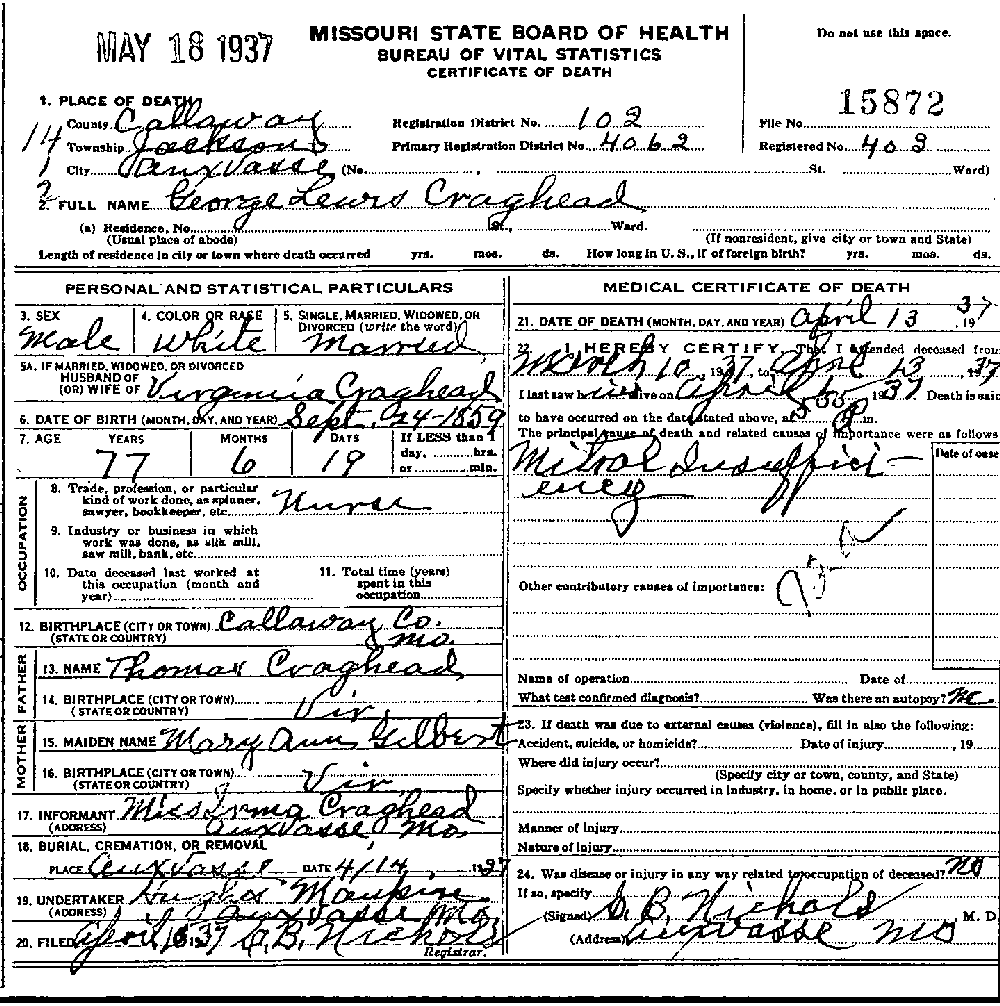 MAY 18 1937
MISSOURI STATE BOARD OF HEALTH
BUREAU OF VITAL STATISTICS
CERTIFICATE OF DEATH
Do not use this space.
15872
1. PLACE OF DEATH
County Callaway Registration District No. 102 File No.
14 Township Jackson Primary Registration District No. 4062 Registered No. 403
1 City Auxvasse (No. St. Ward)
2. FULL NAME George Lewis Craghead
(a) Residence, No. St., Ward.
(Usual place of abode) (If nonresident, give city or town and State)
Length of residence in city or town where death occurred yrs. mos. ds. How long in U. S., if of foreign birth? yrs. mos. ds.
PERSONAL AND STATISTICAL PARTICULARS
3. SEX 4. COLOR OR RACE 5. SINGLE, MARRIED, WIDOWED, OR DIVORCED (write the word)
Male White Married
5A. IF MARRIED, WIDOWED, OR DIVORCED
HUSBAND OF
(OR) WIFE OF Virginia Craghead
6. DATE OF BIRTH (MONTH, DAY, AND YEAR) Sept. 24-1859
7. AGE YEARS MONTHS DAYS If LESS than 1
77 6 19 day, hrs.
or min.
OCCUPATION
8. Trade, profession, or particular
kind of work done, as spinner,
sawyer, bookkeeper, etc. Nurse
9. Industry or business in which
work was done, as silk mill,
saw mill, bank, etc.
10. Date deceased last worked at
this occupation (month and
year)
11. Total time (years)
spent in this
occupation
12. BIRTHPLACE (CITY OR TOWN) Callaway Co.
(STATE OR COUNTRY) Mo.
FATHER
13. NAME Thomas Craghead
14. BIRTHPLACE (CITY OR TOWN)
(STATE OR COUNTRY) Vir.
MOTHER
15. MAIDEN NAME Mary Ann Gilbert
16. BIRTHPLACE (CITY OR TOWN)
(STATE OR COUNTRY) Vir
17. INFORMANT Miss Irma Craghead
(ADDRESS) Auxvasse Mo
18. BURIAL, CREMATION, OR REMOVAL
PLACE Auxvasse DATE 4/14, 1937
19. UNDERTAKER Hughes Maupin
(ADDRESS) Auxvasse Mo.
20. FILED April 1937 B. Nichols
Registrar.
MEDICAL CERTIFICATE OF DEATH
21. DATE OF DEATH (MONTH, DAY, AND YEAR) April 13 1937
22. I HEREBY CERTIFY, That I attended deceased from
March 10, 1937, to April 13, 1937
I last saw h alive on April 1937 Death is said
to have occurred on the date stated above, at m.
The principal cause of death and related causes of importance were as follows
Date of onse
Mitral Insuffici-
ency
Other contributory causes of importance:
Name of operation Date of
What test confirmed diagnosis? Was there an autopsy? No
23. If death was due to external causes (violence), fill in also the following:
Accident, suicide, or homicide? Date of injury , 19
Where did injury occur?
(Specify city or town, county, and State)
Specify whether injury occurred in industry, in home, or in public place.
Manner of injury
Nature of injury
24. Was disease or injury in any way related to occupation of deceased? No
If so, specify
(Signed) B. Nichols, M. D
(Address) Auxvasse Mo